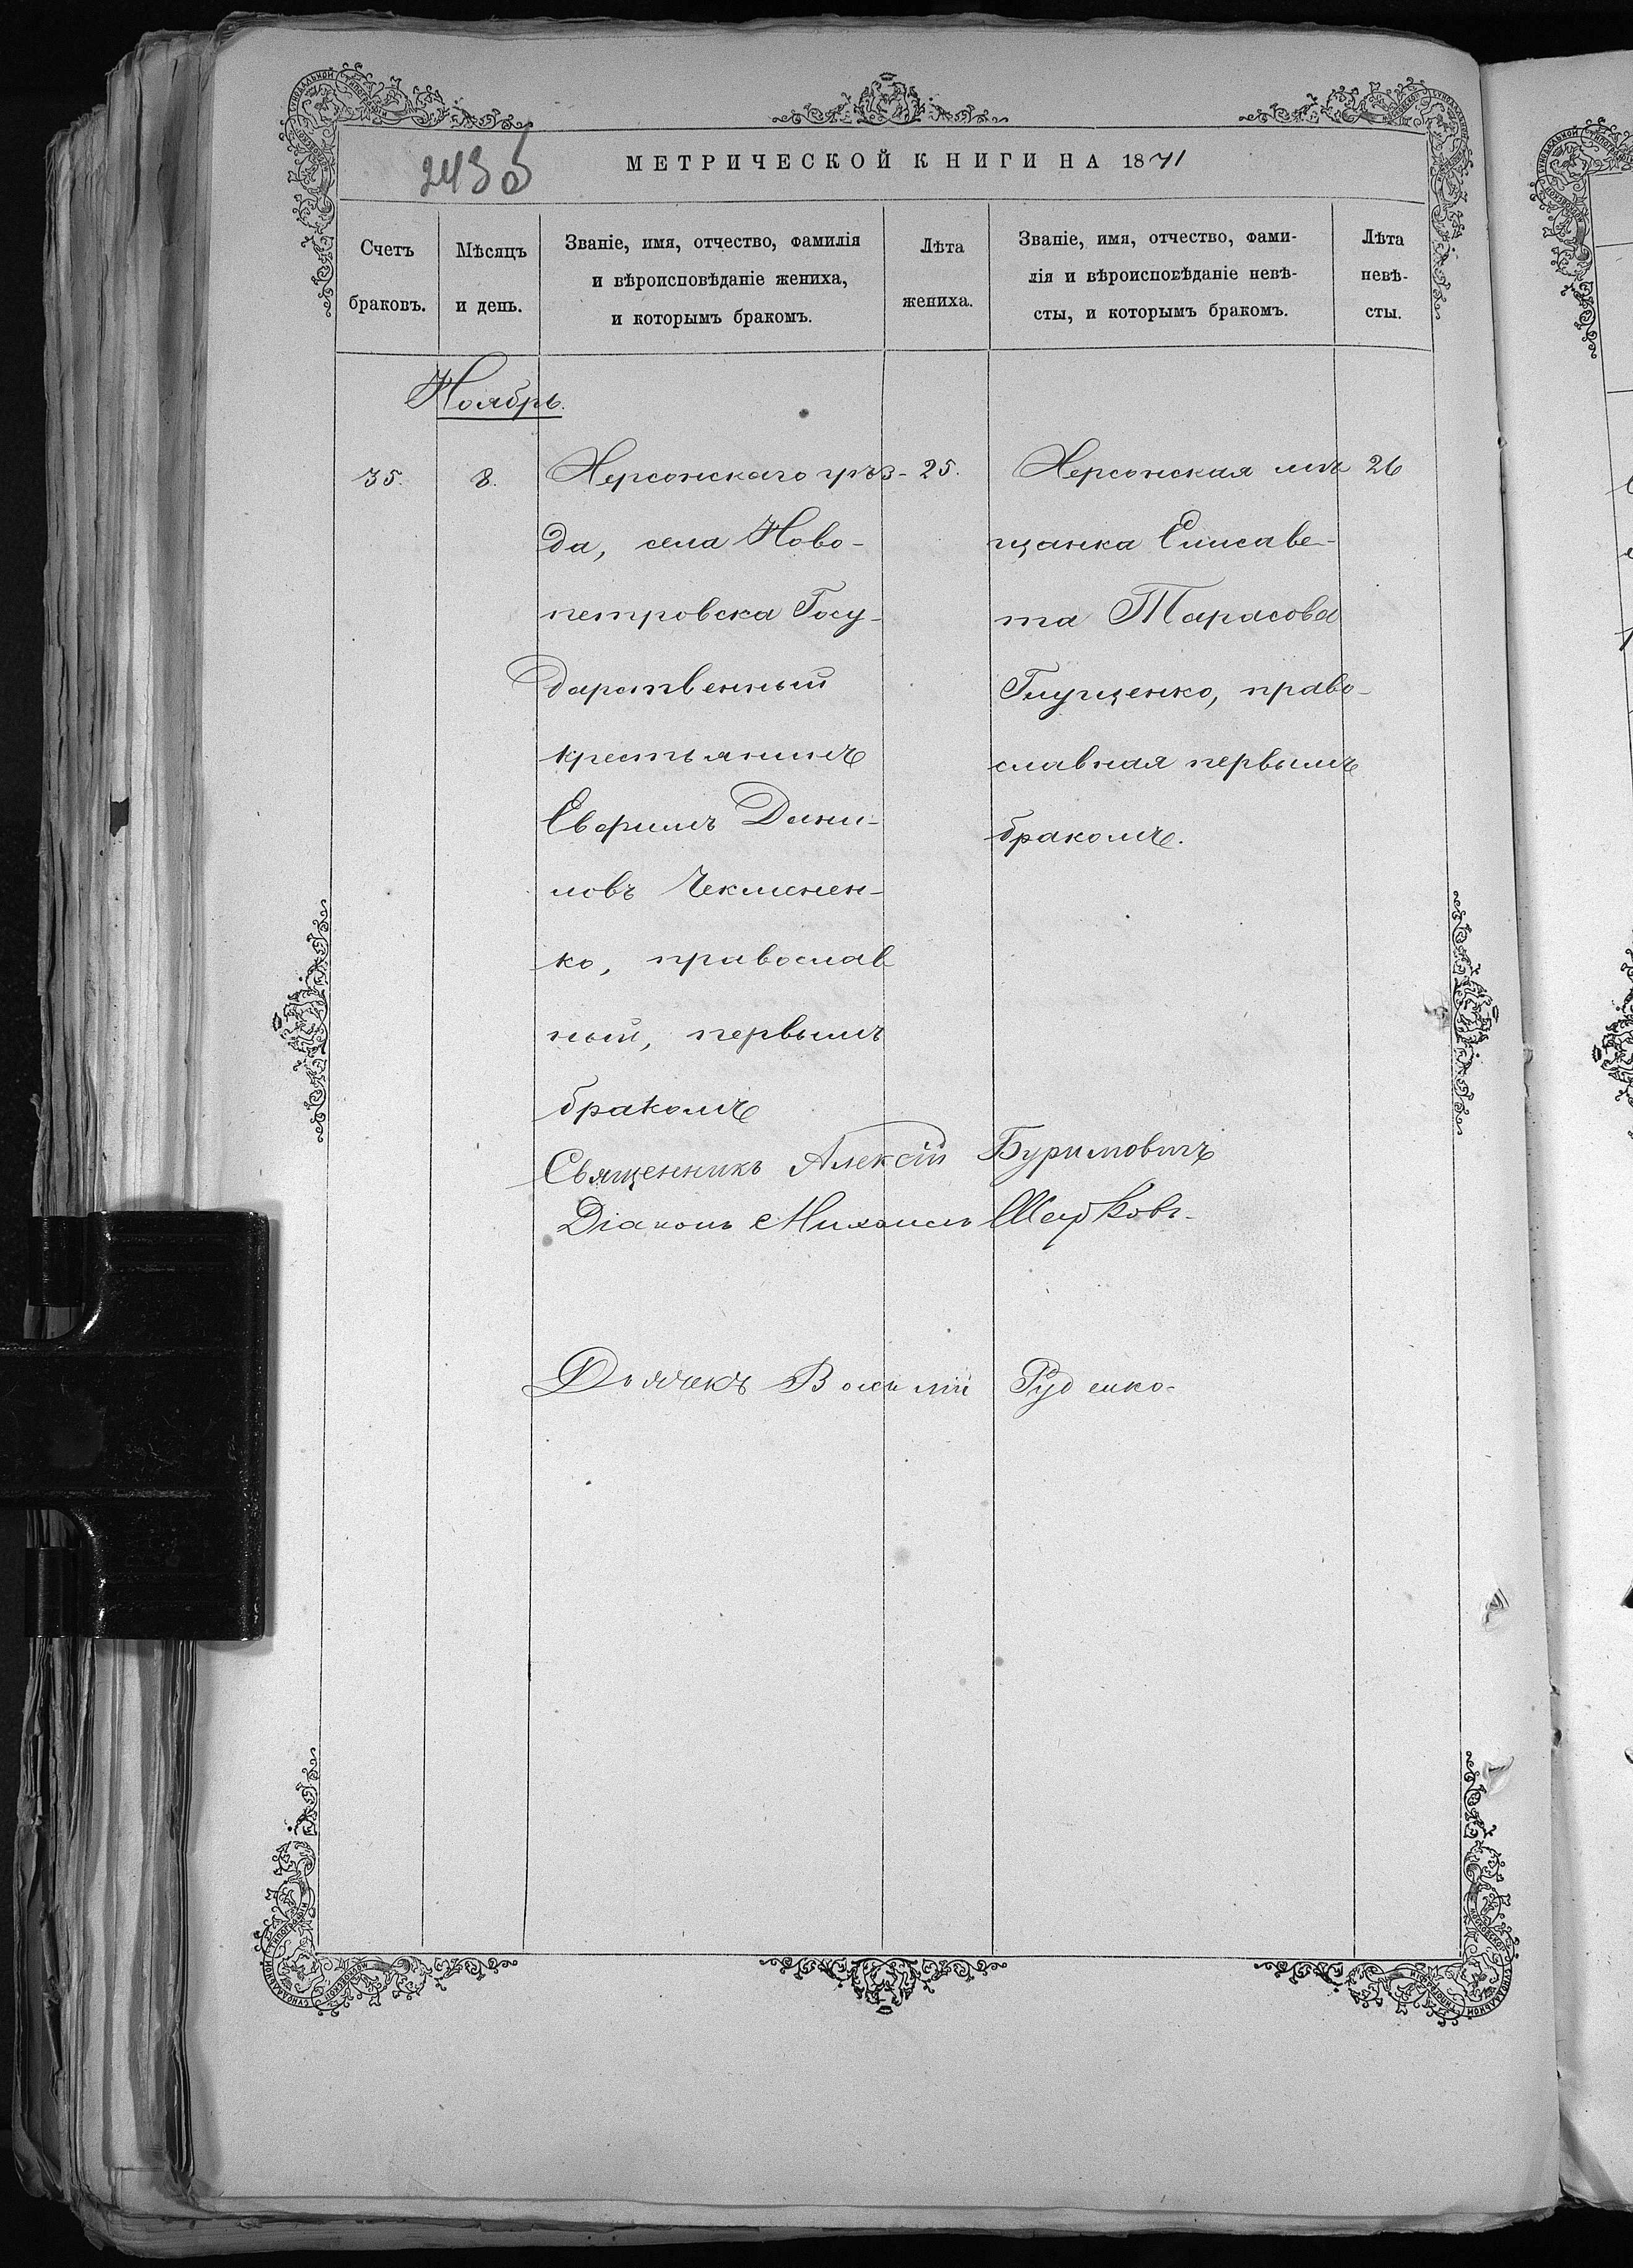 243 об
МЕТРИЧЕСКОЙ КНИГИ НА 1871
Счетъ браковъ.
Мѣсяцъ и день.
Званіе, имя, отчество, фамилія
и вѣроисповѣданіе жениха,
и которымъ бракомъ.
Лѣта
жениха.
Званіе, имя, отчество, фами-
лія и вѣроисповѣданіе невѣ-
сты, и которымъ бракомъ.
Лѣта
невѣ-
сты.
Ноябрь.
35.
8.
Херсонскаго уѣз-
да, села Ново-
петровска Госу-
дарственный
крестьянинъ
Дани-
ловъ Чекменен-
ко, православ
ный, первымъ
бракомъ
25.
Херсонская мѣ
щанка Елисаве-
та Тарасова
Глущенко, право-
славная первымъ
бракомъ.
26
Священникъ Алексій Буримовичъ
Діаконъ Михаилъ
Дьячекъ Василій Руденко.